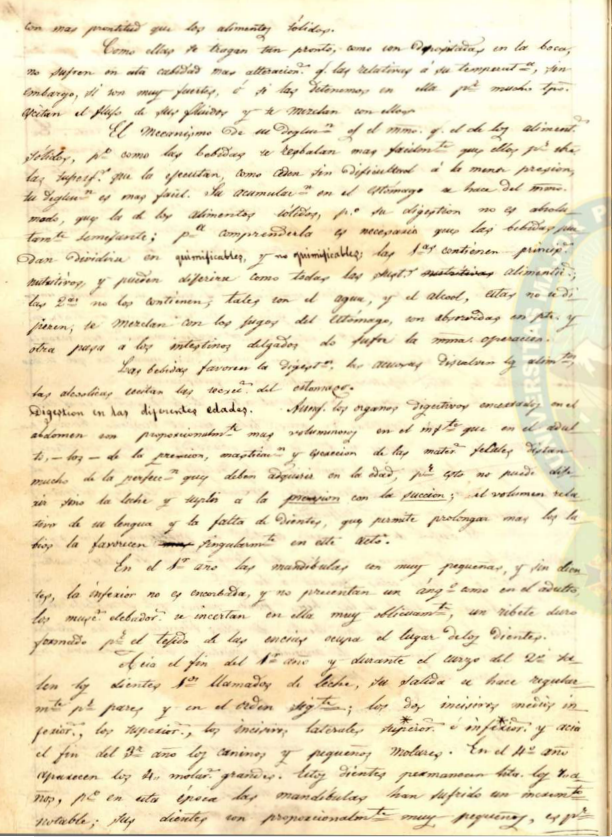 con mas prontitud que los alimentos sólidos.
Como ellas se tragan tan pronto, como son depositadas en la boca,
no sufren en ata cabidad mas alteracion. q. las relativas á su temperat.ᵃ, sin
embargo, si son muy fuertes, ó si las detenemos en ella p.ʳ mucho tpo.
exitan el flujo de sus fluidos y se mezclan con ellos
El Mecanismo de su deglu.ⁿ es el mmo. q. el de los aliment.ˢ
sólidos, p.º como las bebidas se resbalan mas facilm.ᵗᵉ que ellos p.ʳ
las superf.ˢ que la ejecutan, como ceden sin dificultad á la menor presion,
su deglu.ⁿ es mas facil. Su acumular.ⁿ en el estómago se hace del mmo.
modo, que la de los alimentos sólidos, p.º su digestion no es absolu
tam.ᵗᵉ semejante; p.ᵃ comprenderla es necesario que las bebidas se
dan dividirse en quimificables, y no quimificables; las 1.ᵃˢ contienen princip.ˢ
nutritivos, y pueden diferirse como todas las sust.ˢ nutritivas alimentic.ˢ;
las 2.ᵃˢ no los contienen; tales son el agua, y el alcool, estas no se di
jieren; se mezclan con los jugos del Estómago, son absorvidas en pte. y
otra pasa a los intestinos delgados do sufre la mma. operacion.
Las bebidas favorecen la digest.ⁿ, las acuosas disuelven los alim.ᵗᵒˢ
las alcoolicas excitan las secrec.ˢ del estomago.
Digestion en las diferentes edades. Aunq. los organos digestivos encerrados en el
abdomen son proporcionalm.ᵗᵉ mas voluminosos en el inf.ᵗᵉ que en el adul
to, – los – de la presion, masticac.ⁿ y escrecion de las mater.ˢ fecales distan
mucho de la perfecc.ⁿ que deben adquirir en la edad, p.ʳ esto no puede dije
rir sino la leche y suplir á la presion con la succion; el volumen rela
tivo de su lengua y la falta de dientes, que permite prolongar mas los la
bios la favorecen singularm.ᵗᵉ en este acto.
En el 1.ᵉʳ año las mandíbulas son muy pequeñas, y sin dien
tes, la inferior no es encorbada, y no presentan un áng.º como en el adulto,
los musc.ˢ elebador.ˢ se incertan en ella muy oblicuam.ᵗᵉ, un ribete duro
formado p.ʳ el tejido de las encias ocupa el lugar de los dientes.
Acia el fin del 1.ᵉʳ año y durante el curzo del 2.º sa
len los dientes 1.ᵒˢ llamados de leche, su salida se hace regular
m.ᵗᵉ p.ʳ pares y en el orden sig.ᵗᵉ; los dos incisivos medios in
ferior.ˢ, los superior.ˢ, los incisivos laterales superior.ˢ é inferior.ˢ y acia
el fin del 3.º año los caninos y pequeños molares. En el 4.º año
aparecen los 4. molar.ˢ grandes. Estos dientes permanecen hta. los
años, p.º en esta época las mandíbulas han sufrido un increm.ᵗᵒ
notable; sus dientes son proporcionalm.ᵗᵉ muy pequeños, es p.ʳ